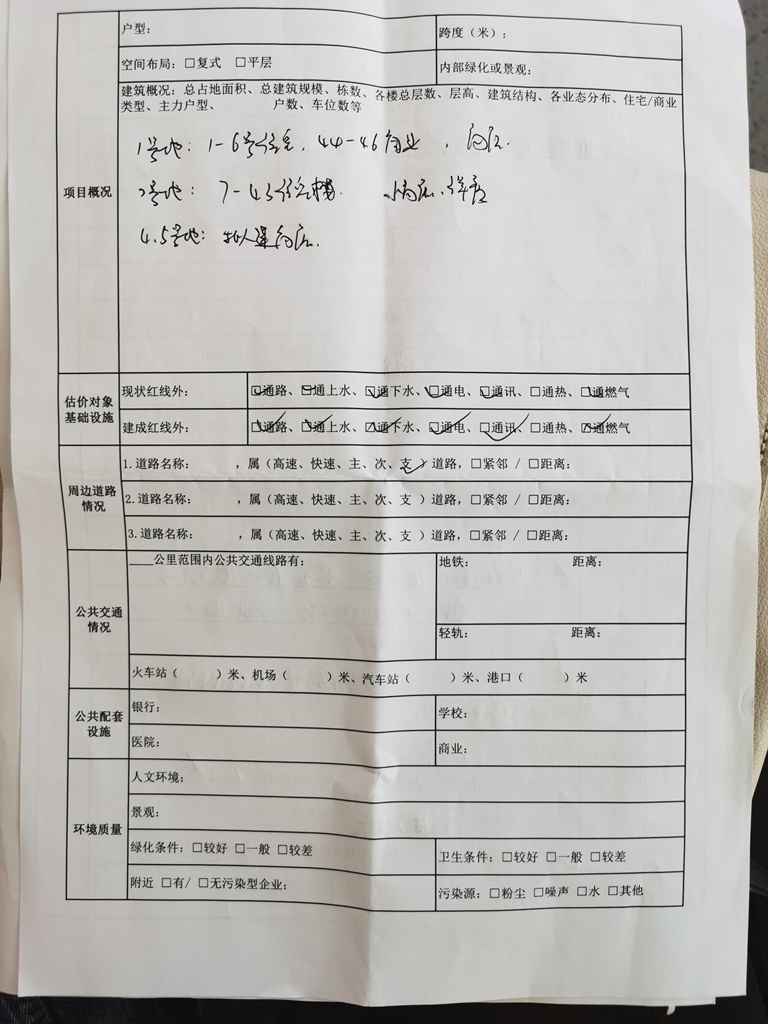 户型：
跨度（米）：
空间布局：□复式 □平层
内部绿化或景观：
项目概况
建筑概况：总占地面积、总建筑规模、栋数、各楼总层数、层高、建筑结构、各业态分布、住宅/商业
类型、主力户型、 户数、车位数等
1号地：1-6号住宅，44-46商业，
2号地：7-45 小高层、洋房
4.5号地：
估价对象
基础设施
现状红线外：
☑通路、☑通上水、☑通下水、☑通电、☑通讯、□通热、☑通燃气
建成红线外：
☑通路、☑通上水、☑通下水、☑通电、☑通讯、□通热、☑通燃气
周边道路
情况
1.道路名称： ，属（高速、快速、主、次、支）道路，□紧邻 / □距离：
2.道路名称： ，属（高速、快速、主、次、支 ）道路，□紧邻 / □距离：
3.道路名称： ，属（高速、快速、主、次、支 ）道路，□紧邻 / □距离：
公共交通
情况
___公里范围内公共交通线路有：
地铁： 距离：
轻轨： 距离：
火车站（ ）米、机场（ ）米、汽车站（ ）米、港口（ ）米
公共配套
设施
银行：
学校：
医院：
商业：
环境质量
人文环境：
景观：
绿化条件：□较好 □一般 □较差
卫生条件：□较好 □一般 □较差
附近 □有/ □无污染型企业：
污染源：□粉尘 □噪声 □水 □其他